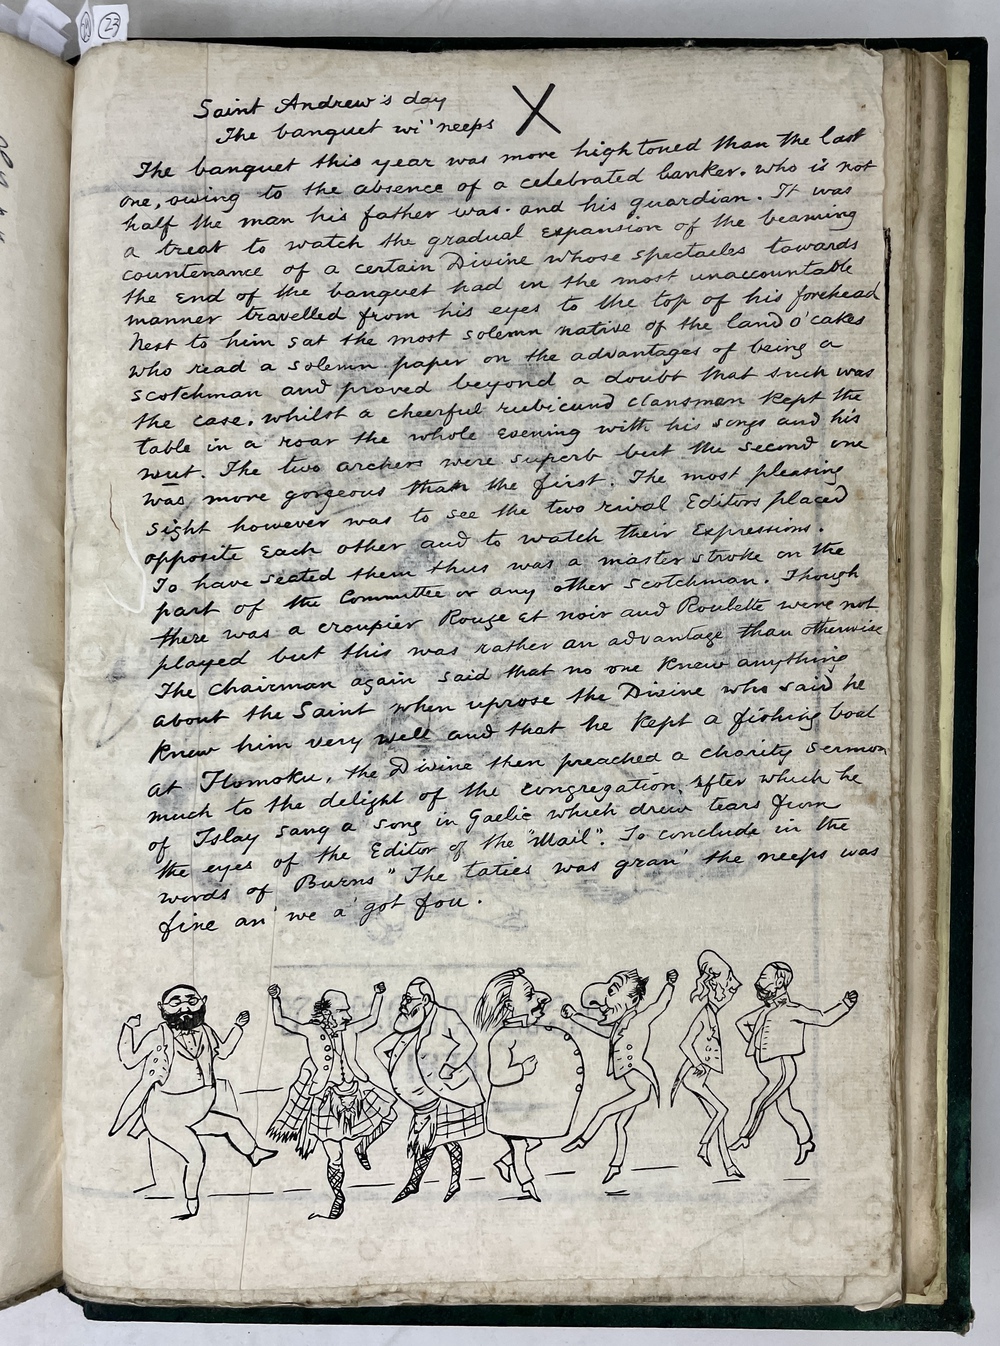 23
Saint Andrew's day
The banquet wi' neeps
X
The banquet this year was more high toned than the last
one, owing to the absence of a celebrated banker. who is not
half the man his father was. and his guardian. It was
a treat to watch the gradual expansion of the beaming
countenance of a certain Divine whose spectacles towards
the End of the banquet had in the most unaccountable
manner travelled from his eyes to the top of his forehead
Next to him sat the most solemn native of the land o' cakes
who read a solemn paper on the advantages of being a
scotchman and proved beyond a doubt that such was
the case. whilst a cheerful rubicund clansman kept the
table in a roar the whole evening with his songs and his
wut. The two archers were superb but the second one
was more gorgeous than the first. The most pleasing
sight however was to see the two rival Editors placed
opposite Each other and to watch their Expressions.
To have seated them thus was a master stroke on the
part of the Committee or any other Scotchman. Though
there was a croupier Rouge et noir and Roulette were not
played but this was rather an advantage than otherwise
The Chairman again said that no one knew anything
about the Saint when uprose the Divine who said he
knew him very well and that he kept a fishing boat
at Homoku, the Divine then preached a charity sermon
much to the delight of the congregation. after which he
of Islay sang a song in Gaelic which drew tears from
the eyes of the Editor of the "Mail". To conclude in the
words of Burns "The taties was gran' the neeps was
fine an' we a' got fou.